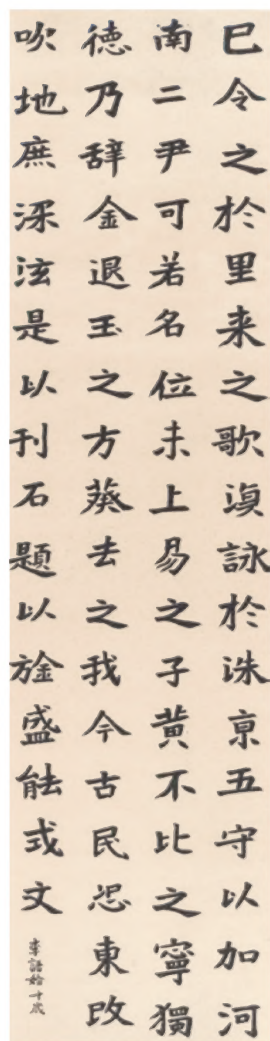 巳令之於里来之歌滇詠於洙京五守以加河
南二尹可若名位未上易之子黄不比之寧獨
德乃辞金退玉之方葵去之我今古民恐東改
吹地庶深泫是以刊石題以旍盛能式文
李語始十歲